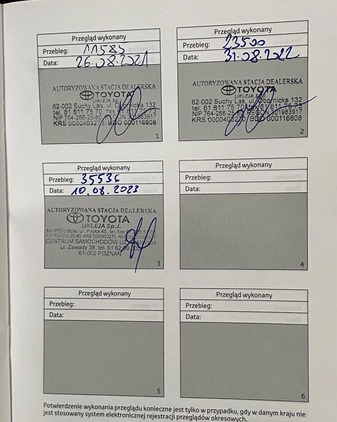 Przegląd wykonany
Przebieg: 11583
Data: 26.08.2021
AUTORYZOWANA STACJA DEALERSKA
TOYOTA
UKLEJA Sp.J.
62-002 Suchy Las, ul. 132
1
Przegląd wykonany
Przebieg: 23500
Data: 31.08.2022
AUTORYZOWANA STACJA DEALERSKA
TOYOTA
UKLEJA Sp.J.
62-002 Suchy Las, ul. 132
2
Przegląd wykonany
Przebieg: 35536
Data: 10.08.2023
AUTORYZOWANA STACJA DEALERSKA
TOYOTA
UKLEJA Sp.J.
CENTRUM SAMOCHODÓW
ul. Zawady 38, tel. 61
61-002 POZNAŃ
3
Przegląd wykonany
Przebieg:
Data:
4
Przegląd wykonany
Przebieg:
Data:
5
Przegląd wykonany
Przebieg:
Data:
6
Potwierdzenie wykonania przeglądu konieczne jest tylko w przypadku, gdy w danym kraju nie
jest stosowany system elektronicznej rejestracji przeglądów okresowych.